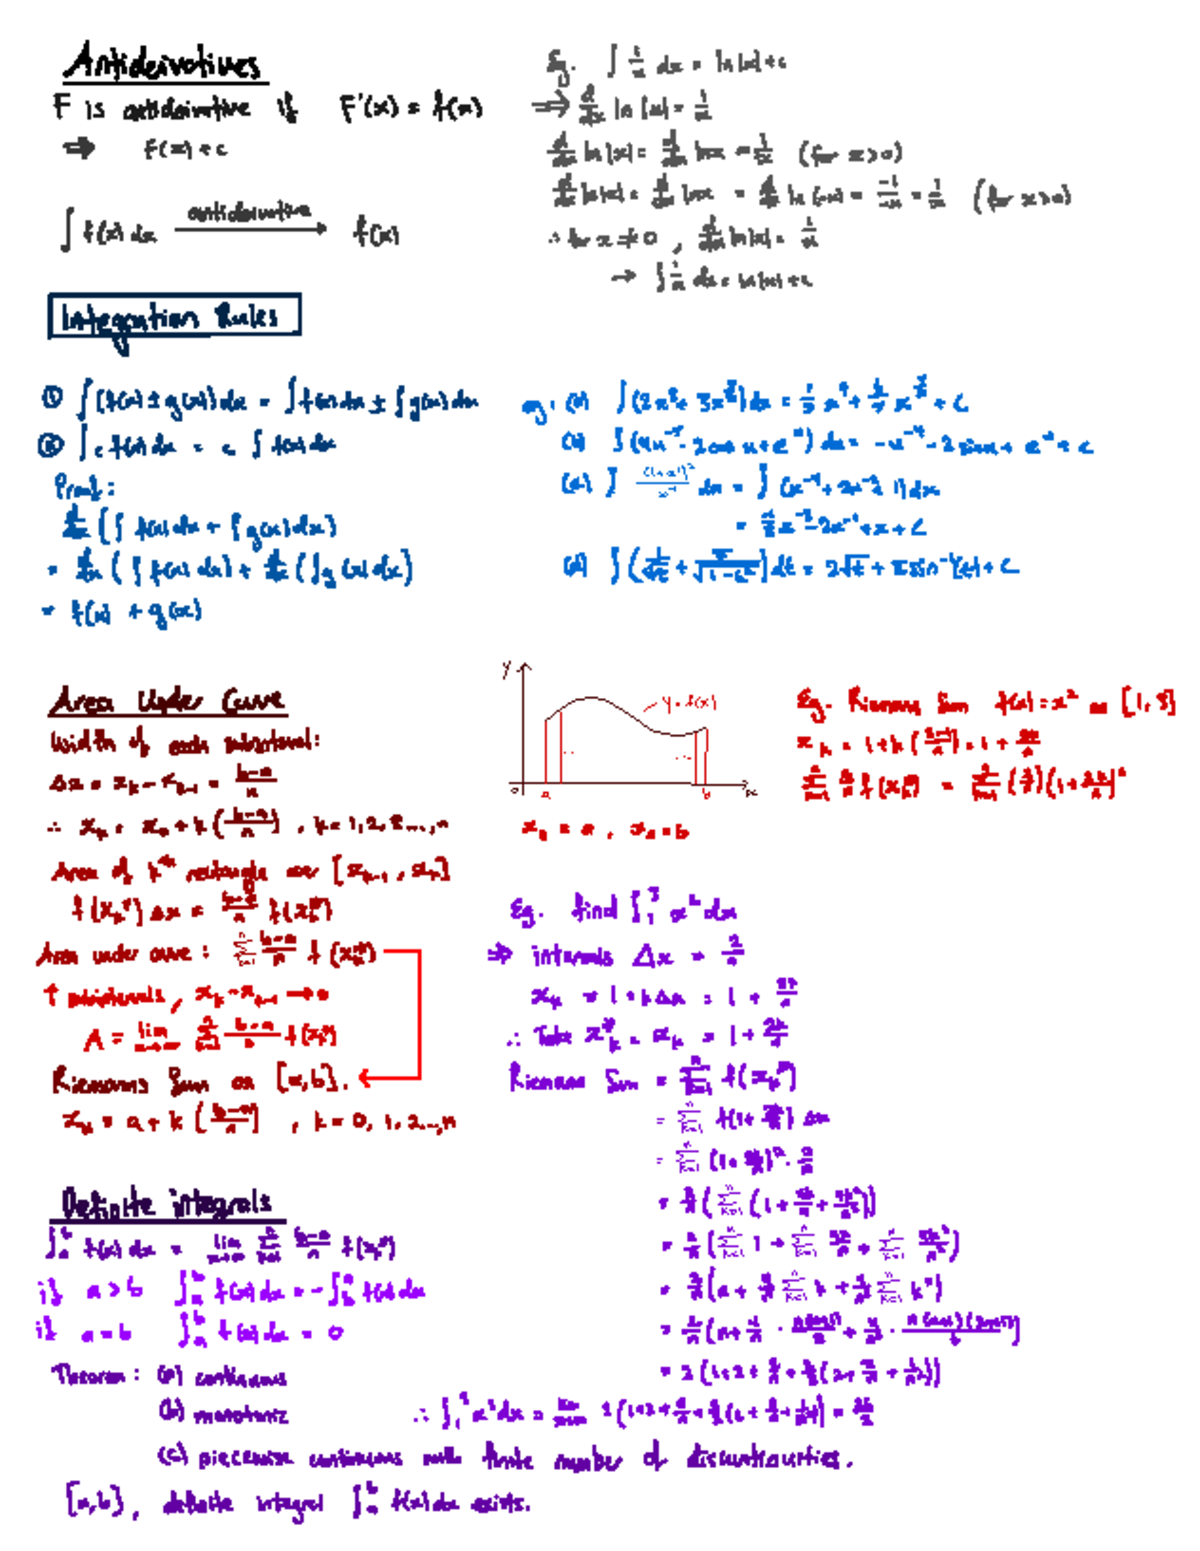 Antiderivatives
F is antiderivative if F'(x) = f(x)
⇒ F(x) + c
∫ f(x) dx antiderivative → f(x)
Eg. ∫ 1/x dx = ln|x| + c
⇒ d/dx ln|x| = 1/x
d/dx ln|x| = d/dx ln x = 1/x (for x>0)
d/dx ln|x| = d/dx ln x = d/dx ln(-x) = -1/-x = 1/x (for x>0)
∴ for x≠0, d/dx ln|x| = 1/x
→ ∫ 1/x dx = ln|x| + c
Integration Rules
① ∫(f(x) ± g(x)) dx = ∫f(x)dx ± ∫g(x)dx
② ∫c f(x) dx = c ∫ f(x) dx
Proof:
d/dx (∫ f(x) dx + ∫g(x) dx)
= d/dx (∫ f(x) dx) + d/dx (∫g(x) dx)
= f(x) + g(x)
= -2 sin x + e^x + c
∫ (1+x²)²/x⁴ dx
+ x + C
= 2√t + π sin⁻¹(t) + C
Area Under Curve
Width of each subinterval:
Δx = x_k - x_k-1 = b-a/n
∴ x_k = x_0 + k(b-a/n), k = 1, 2, 3..., n
Area of kth rectangle over [x_k-1, x_k]
f(x_k*) Δx = b-a/n f(x_k*)
Area under curve: Σ b-a/n f(x_k*)
↑ subintervals, x_k - x_k-1 → 0
A = lim n→∞ Σ b-a/n f(x_k*)
Riemanns Sum on [a,b].
x_k = a + k(b-a/n), k = 0, 1, 2..,n
y
y = f(x)
o a b x
x_0 = a, x_n = b
Eg. Riemann Sum f(x) = x² on [1, 3]
x_k = 1 + k(3-1/n) = 1 + 2k/n
Σ 2/n f(x_k*) = Σ (2/n)(1 + 2k/n)²
Eg. find ∫₁³ x² dx
⇒ intervals Δx = 2/n
x_k = 1 + kΔx = 1 + 2k/n
∴ Take x_k* = x_k = 1 + 2k/n
Riemann Sum = Σ f(x_k*)
= Σ f(1 + 2k/n) Δx
= Σ (1 + 2k/n)² · 2/n
= 2/n (Σ (1 + 4k/n + 4k²/n²))
= 2/n (Σ 1 + Σ 4k/n + Σ 4k²/n²)
= 2/n (n + 4/n Σ k + 4/n² Σ k²)
= 2/n (n + 4/n · n(n+1)/2 + 4/n² · n(n+1)(2n+1)/6)
Definite integrals
∫ₐᵇ f(x) dx = lim n→∞ Σ b-a/n f(x_k*)
if a > b ∫ₐᵇ f(x) dx = -∫_b^a f(x) dx
if a = b ∫ₐᵇ f(x) dx = 0
Theorem: (a) continuous
(b) monotonic
∴ ∫₁³ x² dx = lim n→∞
(c) piecewise continuous with finite number of discontinuities.
[a,b], definite integral ∫ₐᵇ f(x) dx exists.